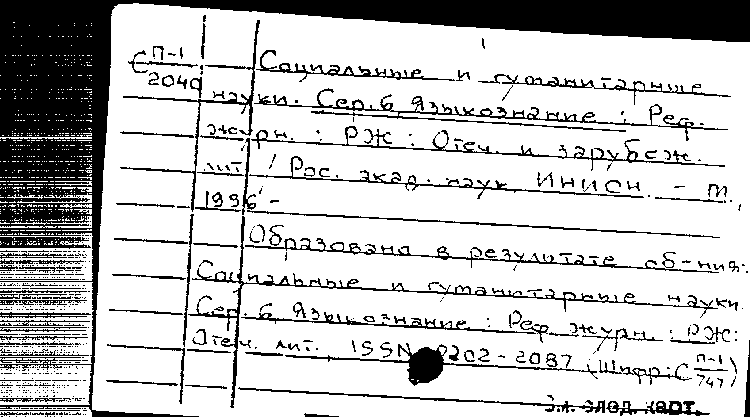 1
С П-1/2040 Социальные и гуманитарные
науки. Сер. 6, Языкознание : Реф.
журн. : РЖ : Отеч. и зарубеж.
лит. / Рос. акад. наук, ИНИОН. - М.,
1996 -
Образована в результате об-ния:
Социальные и гуманитарные науки.
Сер. 6, Языкознание : Реф. журн. : РЖ:
Отеч. лит., ISSN 0202-2087 (Шифр: С П-1/747)
см. след. карт.